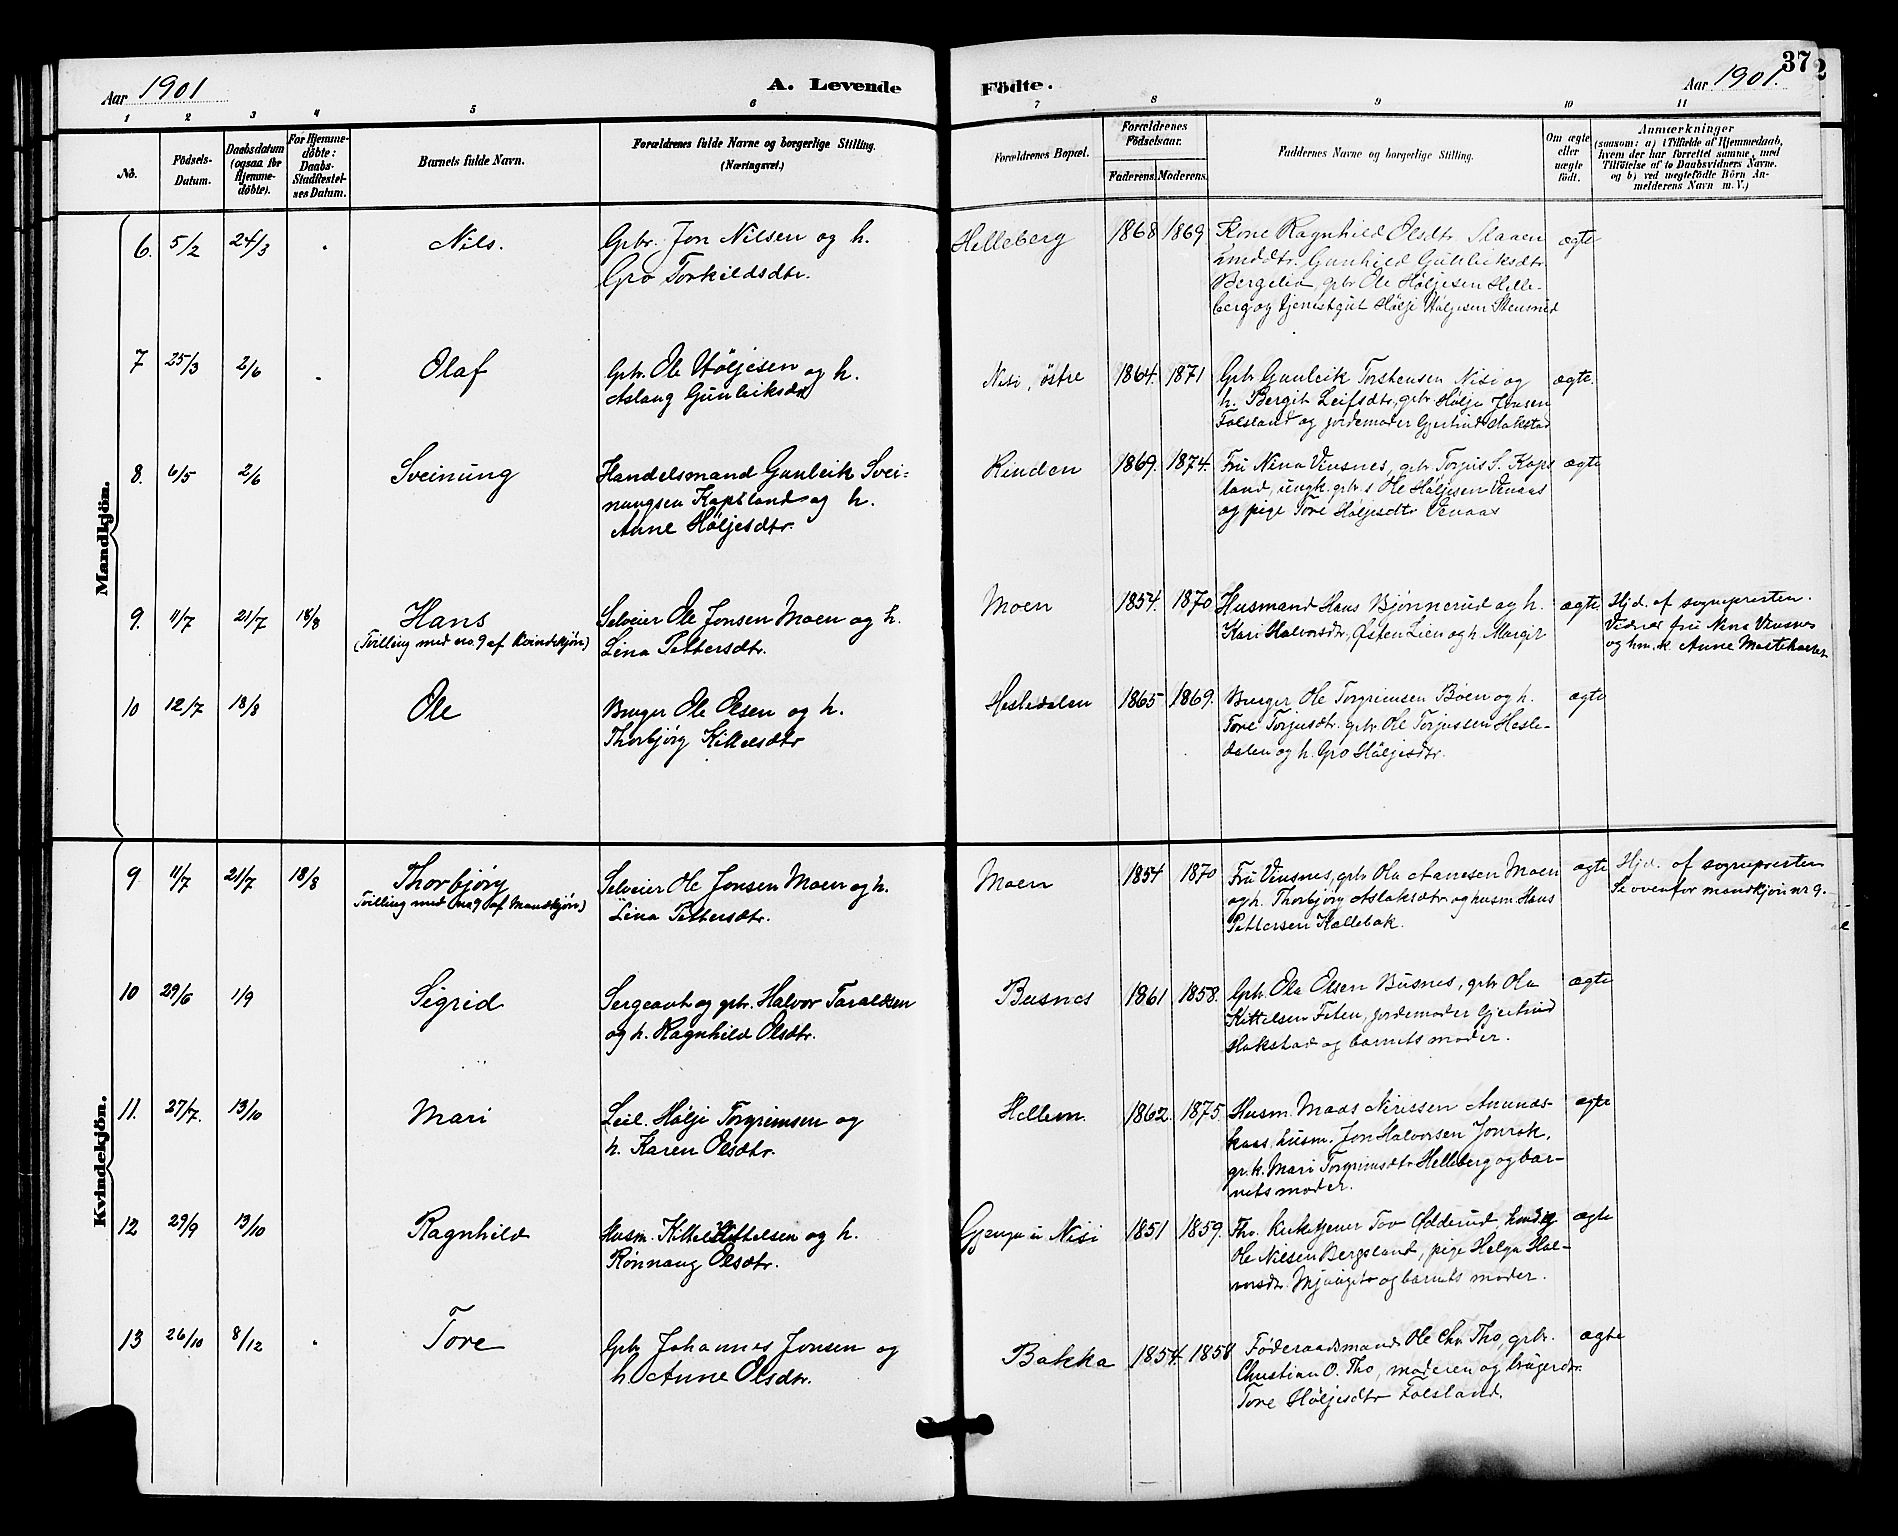 Aar 1901
A. Levende
Födte.
Aar 1901.
37
1 2 3 4 5 6 7 8 9 10 11
No.
Födsels-Datum.
Daabsdatum (ogsaa for Hjemme-döbte).
For Hjemme-döbte: Daabs-Stadfæstelses Datum.
Barnets fulde Navn.
Forældrenes fulde Navne og borgerlige Stilling. (Næringsvei.)
Forældrenes Bopæl.
Forældrenes Födselsaar.
Faderens. Moderens.
Faddernes Navne og borgerlige Stilling.
Om ægte eller uægte födt.
Anmærkninger
(saasom: a) i Tilfælde af Hjemmedaab,
hvem der har forrettet samme, med
Tilföielse af to Daabsvidners Navne.
og b) ved uægtefödte Börn An-
melderens Navn m. V.)
Mandkjön.
6. 5/2 24/3 Nils.
Gpbr. Jon Nilsen og h.
Gro Torkildsdtr.
Helleberg 1868 1869
Kone Ragnhild Olsdtr. Staaen
Gunhild Gunleiksdtr.
Bergelid, gbr Ole Höljesen Helle-
berg og tjenestgut Hölje Höljesen Stensrud
ægte
7 25/3 2/6 Olaf
Gpbr. Ole Höljesen og h.
Aslaug Gunleiksdtr
Nisi, östre 1864. 1871
Gpbr Gunleik Torstensen Nisi og
h. Bergit Leifsdtr, gbr Hölje Jonsen
Folsland og jordemoder Gjertrud Hakstad
ægte.
8. 6/5 2/6 Sveinung
Handelsmand Gunleik Svei-
nungsen Kapsland og h.
Anne Höljesdtr.
Rinden 1869. 1874.
Fru Nina Vinsnes, gbr Torjus S. Kaps
land, ungk. gbr.s Ole Höljesen Venaas
og pige Tore Höljesdtr Venaas
ægte
9. 11/7 21/7 18/8 Hans
(Tvilling med no. 9 af Kvindekjön)
Selveier Ole Jonsen Moen og h.
Lina Pettersdtr.
Moen 1854. 1870
Husmand Hans Bjönnerud og h.
Kari Halvorsdtr, Østen Lien og h. Margit
ægte
Hjd. af sognepresten.
Vidner fru Nina Vinsnes
og hm. k. Anne
10 12/7 18/8 Ole
Bruger Ole Olsen og h.
Thorbjörg Kittelsdtr
Hesledalen 1865 1869.
Bruger Ole Torgrimsen Böen og h.
Tore Torjusdtr. gbr Ole Torjussen Hesle-
dalen og h. Gro Höljesdtr.
ægte
Kvindekjön.
9 11/7 21/7 18/8 Thorbjörg
Tvilling med no 9 af Mandkjön)
Selveier Ole Jonsen Moen og h.
Lina Pettersdtr.
Moen 1854 1870
Fru Vinsnes, gbr Ola Aanesen Moen
og h. Thorbjörg Aslaksdtr og husm. Hans
Pettersen Hallebak.
ægte
Hjd. af sognepresten
Se ovenfor mandkjön nr 9.
10 29/6 1/9 Sigrid
Sergeant og gbr. Halvor Taraldsen
og h. Ragnhild Olsdtr.
Busnes 1861 1858.
Gpbr. Ola Olsen Busnes, gbr Ola
Kittelsen Feten, jordemoder Gjertrud
Hakstad og barnets moder.
ægte
11. 27/7. 13/10 Mari
Leil. Hölje Torgrimsen og
h. Karen Olsdtr.
Hellem. 1862. 1875.
Husm. Maas Nirissen Amunds-
kaas, husm. Jon Halvorsen Jonrok,
gr. k. Mari Torgrimsdtr Helleberg og bar-
nets moder.
ægte
12 29/9 13/10 Ragnhild
Husm. Kittel Kittelsen og h.
Rönnaug Olsdtr.
u Nisi 1851 1859.
Fho. kirketjener Tov Odderud,
Ole Nilsen Bergsland, pige Helga Hal-
vorsdtr og barnets moder.
ægte
13 26/10 8/12 Tore
Gpbr Johannes Jonsen og
h. Anne Olsdtr.
Bakka 1854. 1858
Föderaadsmand Ole Chr. Tho, gbr.
Christian O. Tho, moderen og brugerdtr.
Tore Höljesdtr Folsland.
ægte